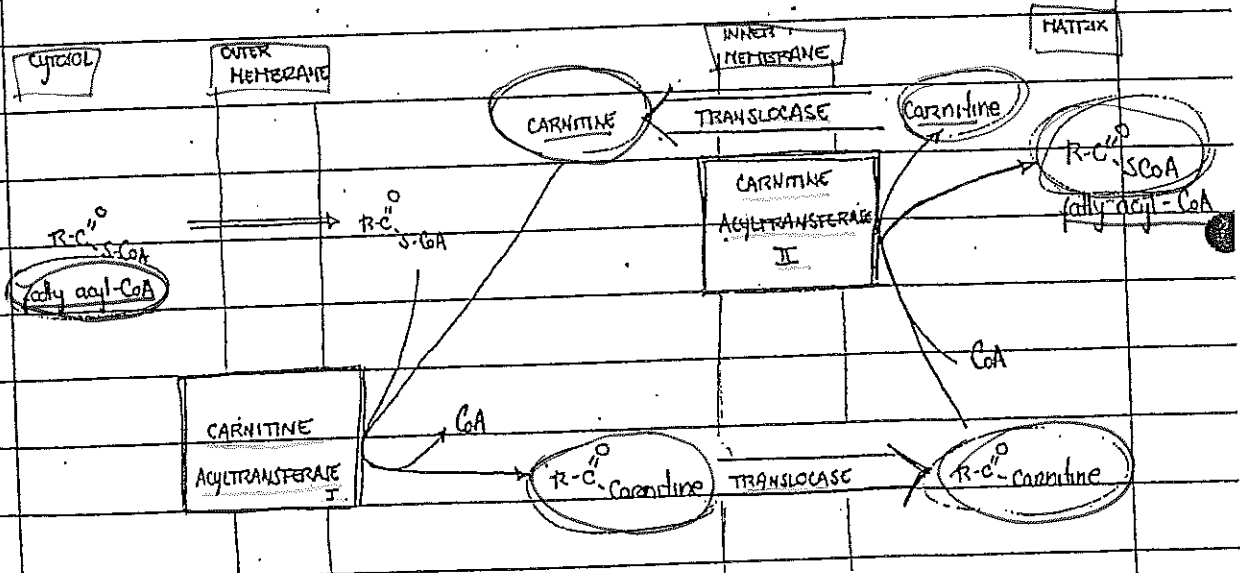 CYTOSOL
OUTER
MEMBRANE
INNER
MEMBRANE
MATRIX
CARNITINE
TRANSLOCASE
Carnitine
R-C=O
S-CoA
fatty acyl-CoA
R-C=O
S-CoA
CARNITINE
ACYLTRANSFERASE
II
R-C=O
SCoA
fatty-acyl-CoA
CoA
CARNITINE
ACYLTRANSFERASE
I
CoA
R-C=O
Carnitine
TRANSLOCASE
R-C=O
Carnitine